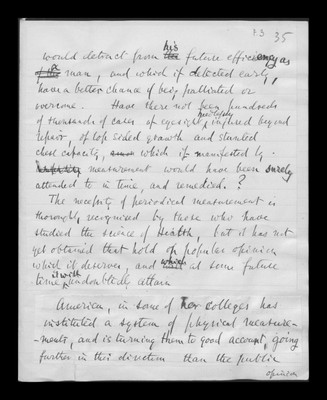 P. 3 35
would detract from his future efficiency as
of a man, and which if detected early,
have a better chance of being palliated or
overcome. Have there not been hundreds
of thousands of cases of eyesight needlessly injured beyond
repair, of lop sided growth and stunted
chest capacity, which if manifested by
measurement would have been surely
attended to in time, and remedied.?
The necessity of periodical measurement is
thoroughly recognised by those who have
studied the science of Health, but it has not
yet obtained that hold on popular opinion
which it deserves, and which at some future
time it will undoubtedly attain
America, in some of her colleges has
instituted a system of physical measure-
-ments, and is turning them to good account, going
further in this direction than the public
opinion